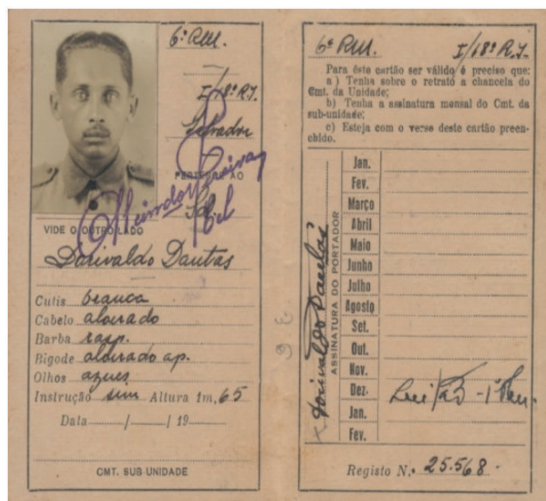 6ª R.M.
I/18º R.I.
PERTENCE AO
Sd.
Cel
VIDE O OUTRO LADO
Dorivaldo Dantas
Cutis branca
Cabelo alourado
Barba rasp.
Bigode alourado ap.
Olhos azues
Instrução sim Altura 1m, 65
Data / / 19
CMT. SUB-UNIDADE
6ª R.M. I/18º R.I.
Para êste cartão ser válido é preciso que:
a) Tenha sobre o retrato a chancela do
Cmt. da Unidade;
b) Tenha a assinatura mensal do Cmt. da
sub-unidade;
c) Esteja com o verso dêste cartão preen-
chido.
Dorivaldo Dantas
ASSINATURA DO PORTADOR
Jan.
Fev.
Março
Abril
Maio
Junho
Julho
Agosto
Set.
Out.
Nov.
Dez.
Jan.
Fev.
Registo N. 25.568